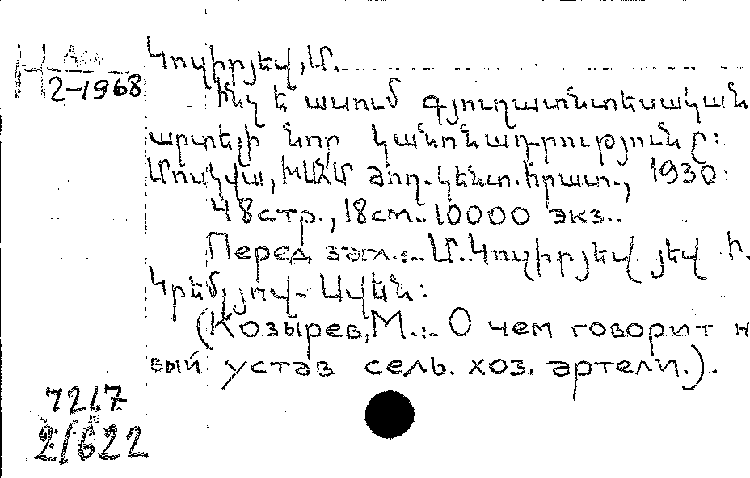 Н Арм
2-1968
Կոզիրյեվ, Մ.
Ինչ է ասում գյուղատնտեսական
արտելի նոր կանոնադրությունը:
Մոսկվա, ԽՍՀՄ ժող. կենտ. հրատ., 1930:
48 стр., 18 см. 10000 экз..
Перед загл.:- Մ. Կոզիրյեվ յեվ Ի.
Կրեմլյով-Սվեն:
(Козырев, М.:- О чем говорит н
вый устав сель. хоз. артели.).
7217
21622